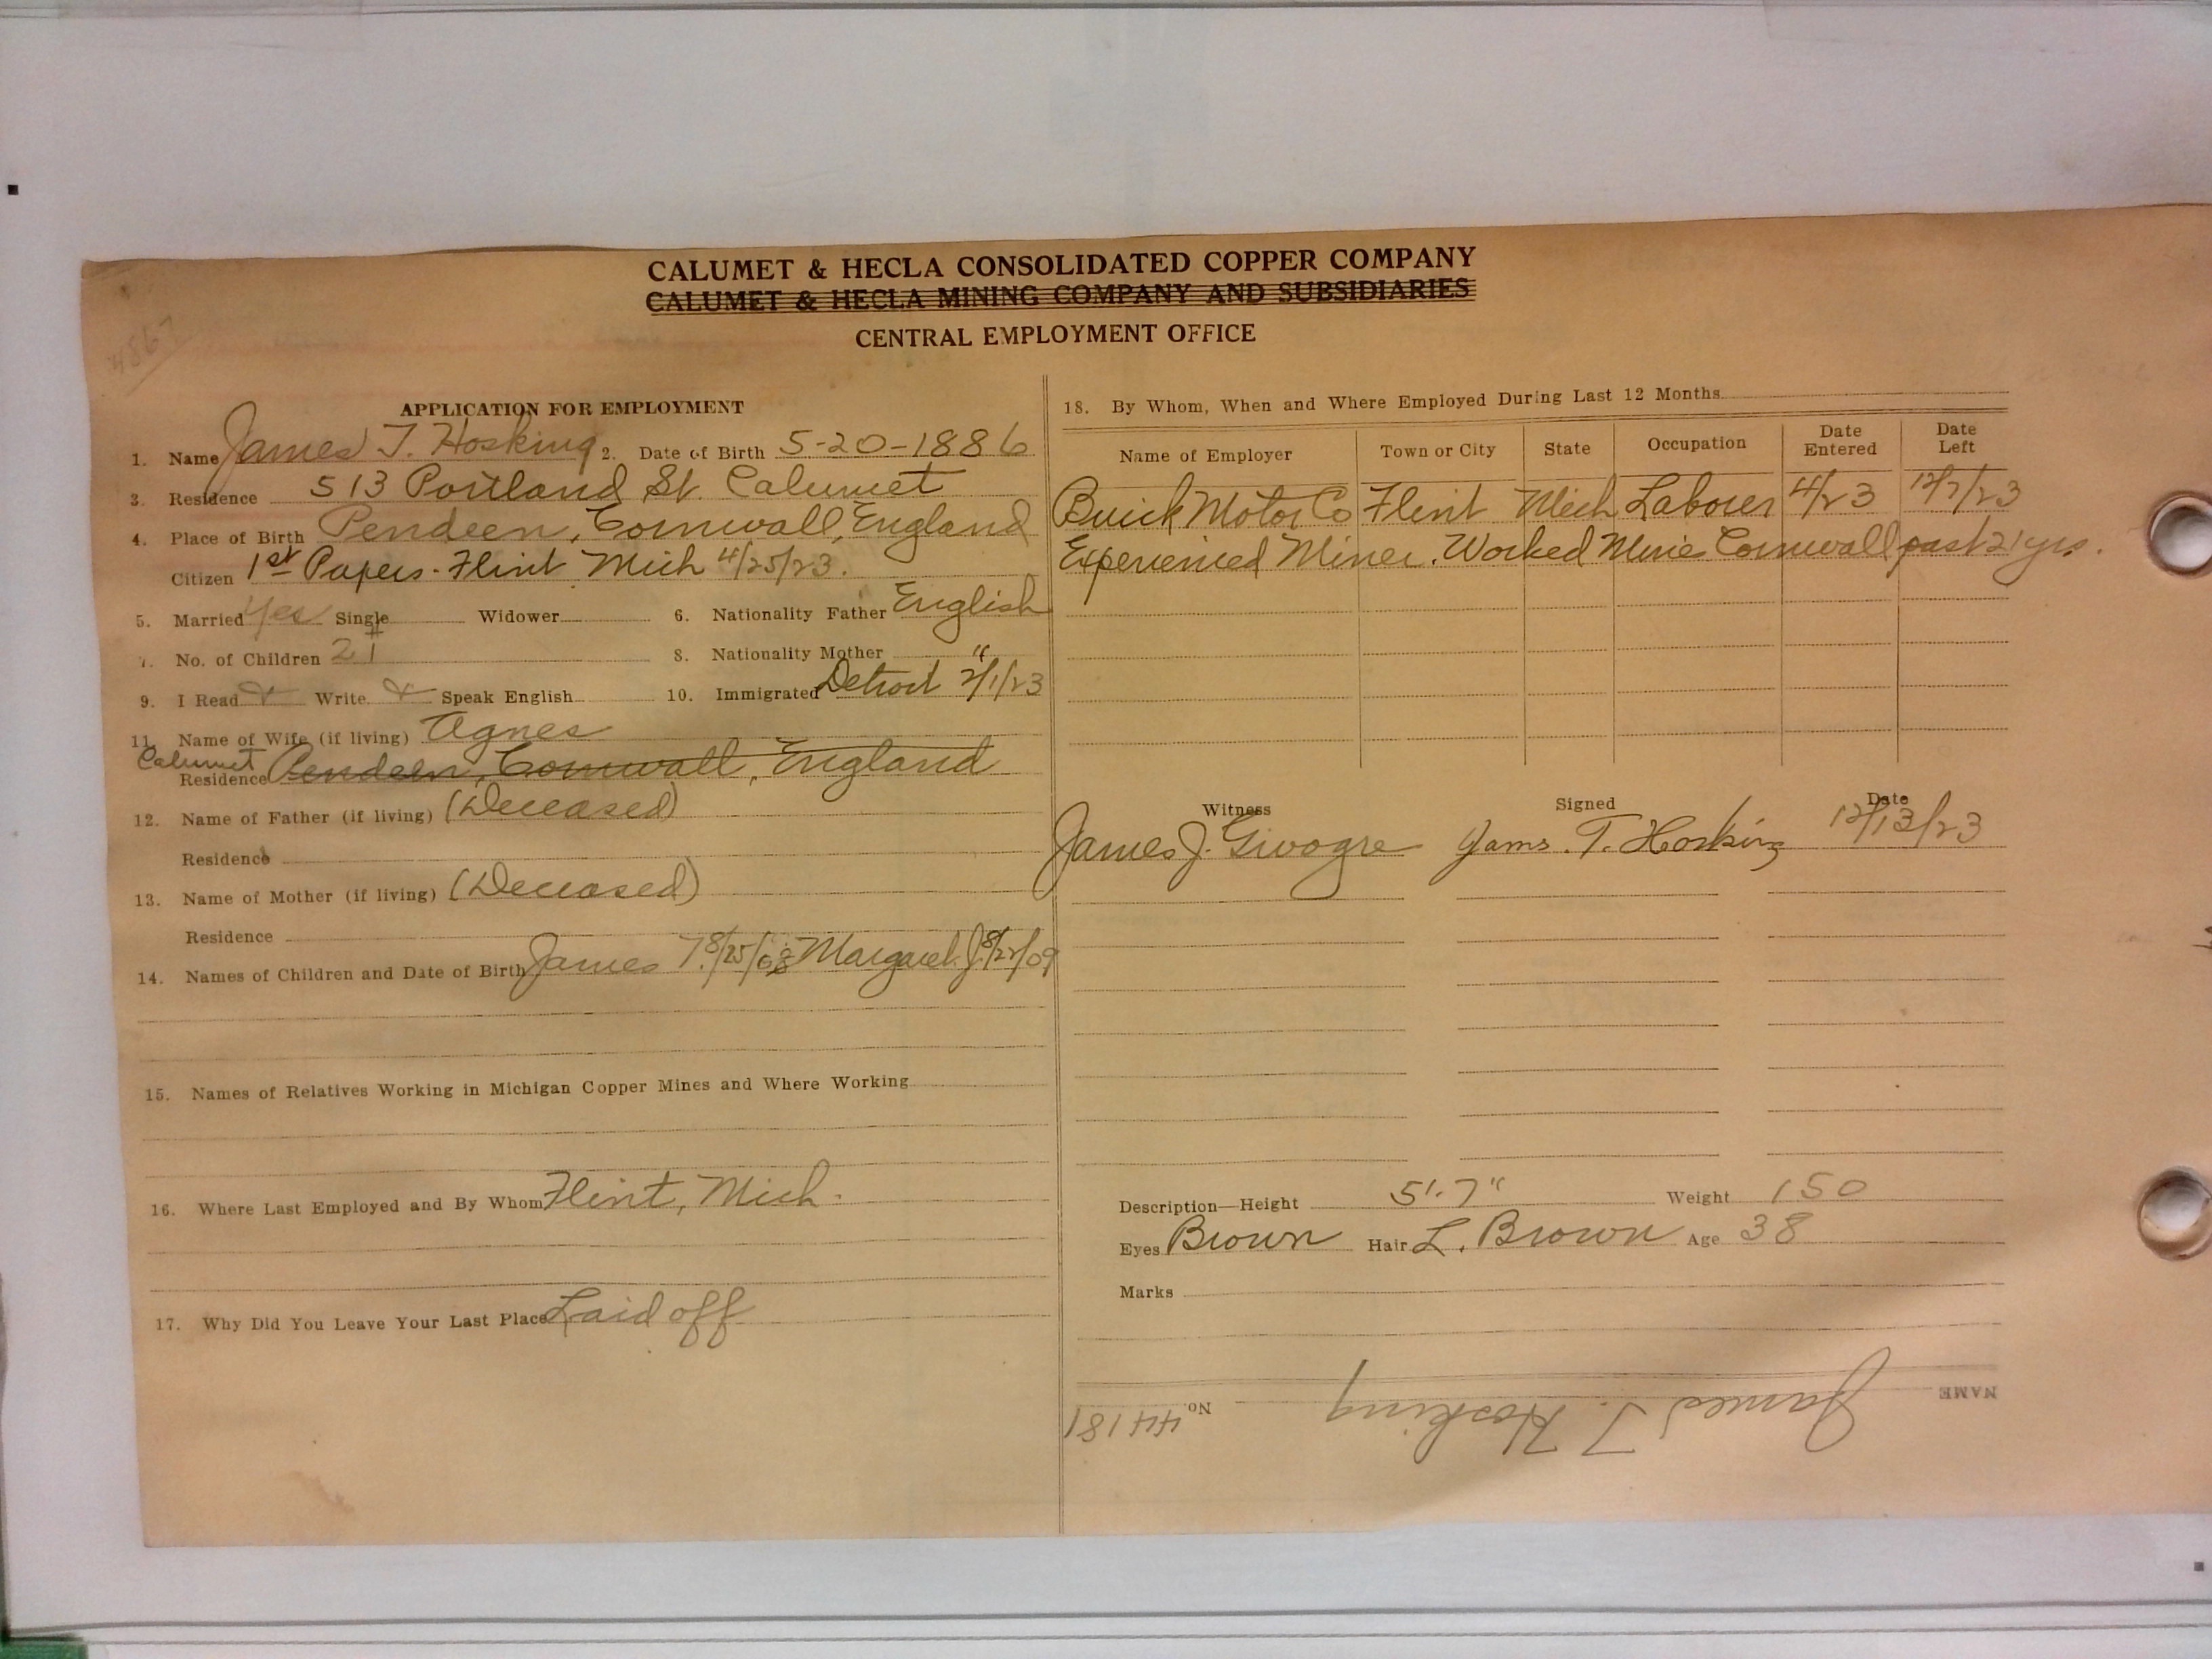 CALUMET & HECLA CONSOLIDATED COPPER COMPANY
CALUMET & HECLA MINING COMPANY AND SUBSIDIARIES
CENTRAL EMPLOYMENT OFFICE
APPLICATION FOR EMPLOYMENT
1. Name James T. Hosking 2. Date of Birth 5-20-1886
3. Residence 513 Portland St. Calumet
4. Place of Birth Pendeen, Cornwall, England
Citizen 1st Papers - Flint Mich 4/25/23.
5. Married Yes Single Widower 6. Nationality Father English
7. No. of Children 2 8. Nationality Mother "
9. I Read Write Speak English 10. Immigrated Detroit 2/1/23
11. Name of Wife (if living) Agnes
Calumet
Residence Pendeen, Cornwall, England
12. Name of Father (if living) (Deceased)
Residence
13. Name of Mother (if living) (Deceased)
Residence
14. Names of Children and Date of Birth James T. 8/25/08 Margaret J. 8/22/09
15. Names of Relatives Working in Michigan Copper Mines and Where Working
16. Where Last Employed and By Whom Flint, Mich.
17. Why Did You Leave Your Last Place Laid off
18. By Whom, When and Where Employed During Last 12 Months
Name of Employer Town or City State Occupation Date Entered Date Left
Buick Motor Co Flint Mich Laborer 4/23 12/7/23
Experienced Miner. Worked Mine Cornwall past 21 yrs.
Witness Signed Date
James J. Jams. T. Hosking 12/13/23
Description—Height 5'-7" Weight 150
Eyes Brown Hair L. Brown Age 38
Marks
NAME James T. Hosking No. 44181